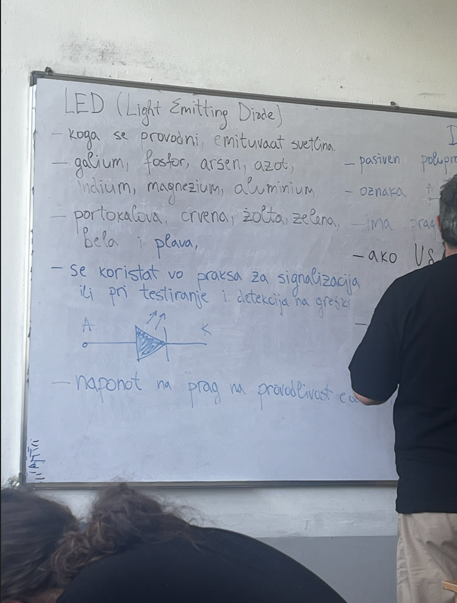 LED (Light Emitting Diode)
- koga se provodni, emituvaat svetlina.
- galium, fosfor, arsen, azot,
indium, magnezium, aluminium
- portokalova, crvena, žolta, zelena,
bela i plava,
- se koristat vo praksa za signalizacija
ili pri testiranje i detekcija na greški
A K
- naponot na prag na provodlivost e
D
- pasiven
- oznaka
- ima
- ako